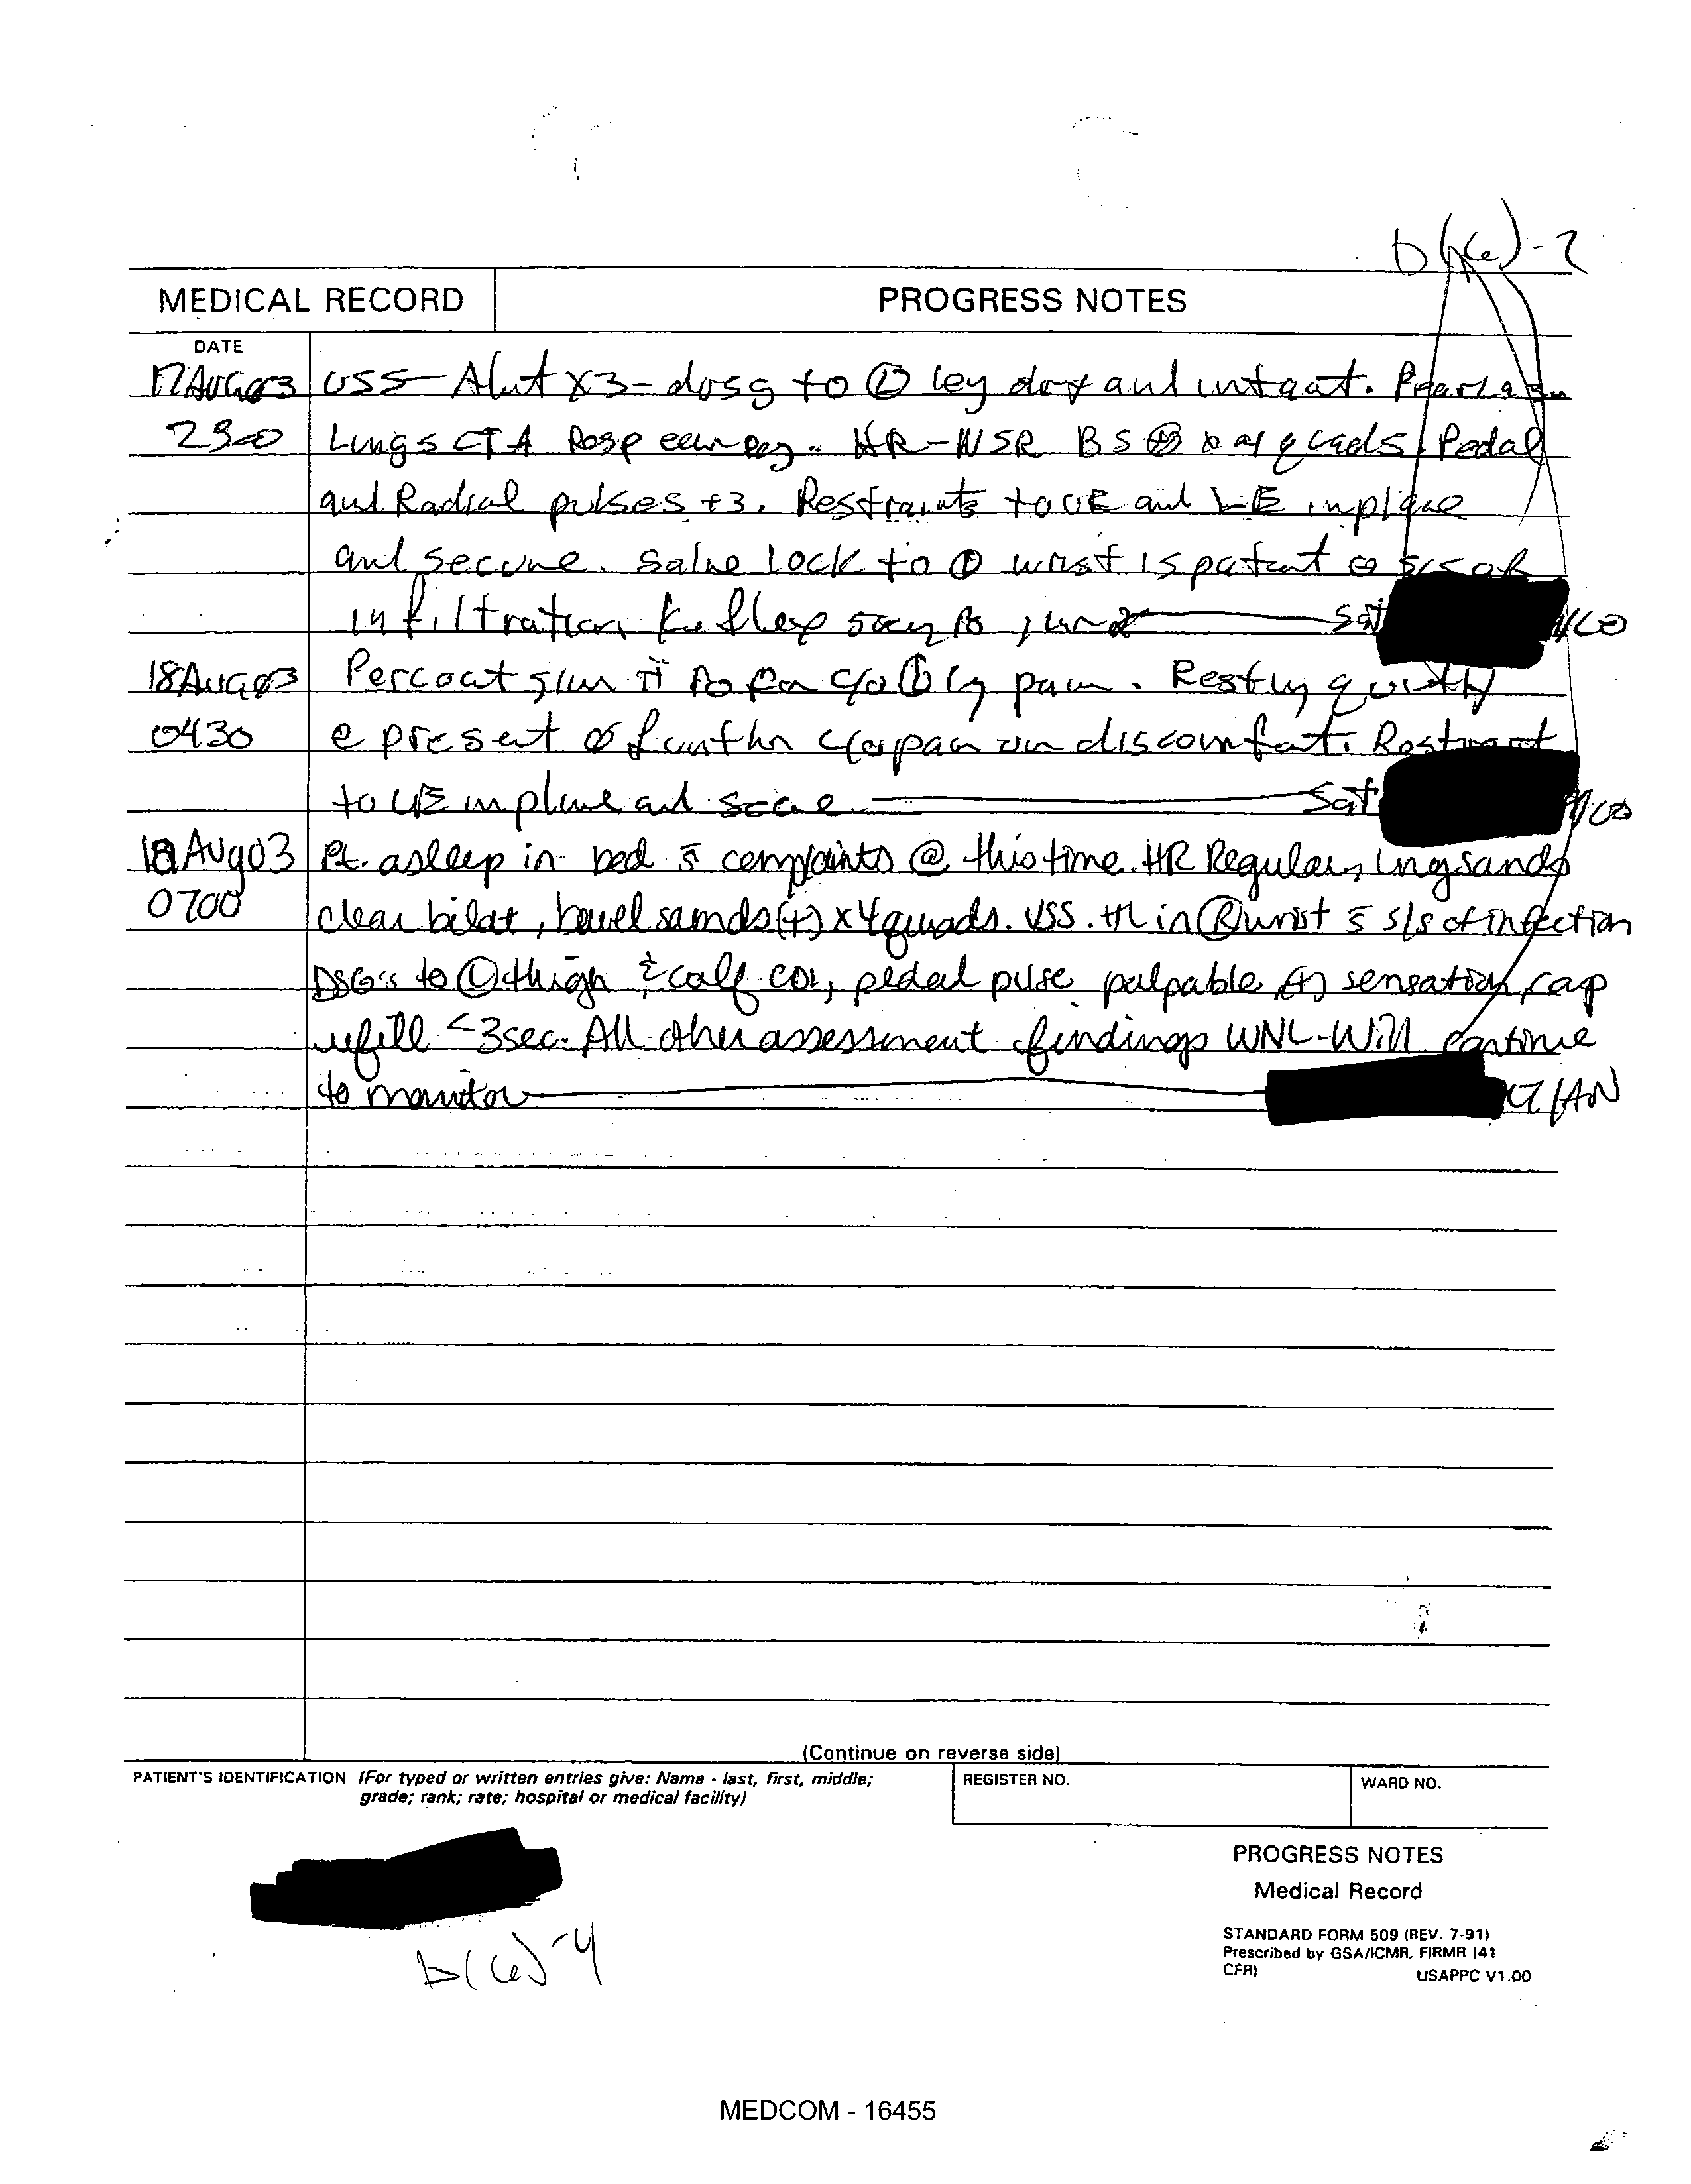 b(6)-2
MEDICAL RECORD PROGRESS NOTES
DATE
17AUG03 VSS- Alert x3- drsg to Ⓛ leg dry and intact.
2300 Lungs CTA Resp even reg. HR-NSR BS ⊕ x quads. Pedal
and Radial pulses +3. Restraints to UE and LE inplace
and secure. Saline lock to wrist is patent
infiltration Keflex PO given Sgt
18AUG03 Percocet given ii PO for c/o Ⓛ leg pain. Resting quietly
0430 @ present Ø further c/o pain discomfort. Restraint
to UE inplace and secure Sgt
18 Aug 03 Pt. asleep in bed s̄ complaints @ this time. HR Regular, lung sands
0700 clear bilat, bowel sounds (+) x 4 quads. VSS. HL in Ⓡ wrist s̄ s/s of infection
DSG's to Ⓛ thigh & calf CDI, pedal pulse palpable (+) sensation, cap
refill <3sec. All other assessment findings WNL-Will continue
to monitor LT/AN
(Continue on reverse side)
PATIENT'S IDENTIFICATION (For typed or written entries give: Name - last, first, middle;
grade; rank; rate; hospital or medical facility)
REGISTER NO.
WARD NO.
b(6)-4
PROGRESS NOTES
Medical Record
STANDARD FORM 509 (REV. 7-91)
Prescribed by GSA/ICMR, FIRMR (41
CFR) USAPPC V1.00
MEDCOM - 16455